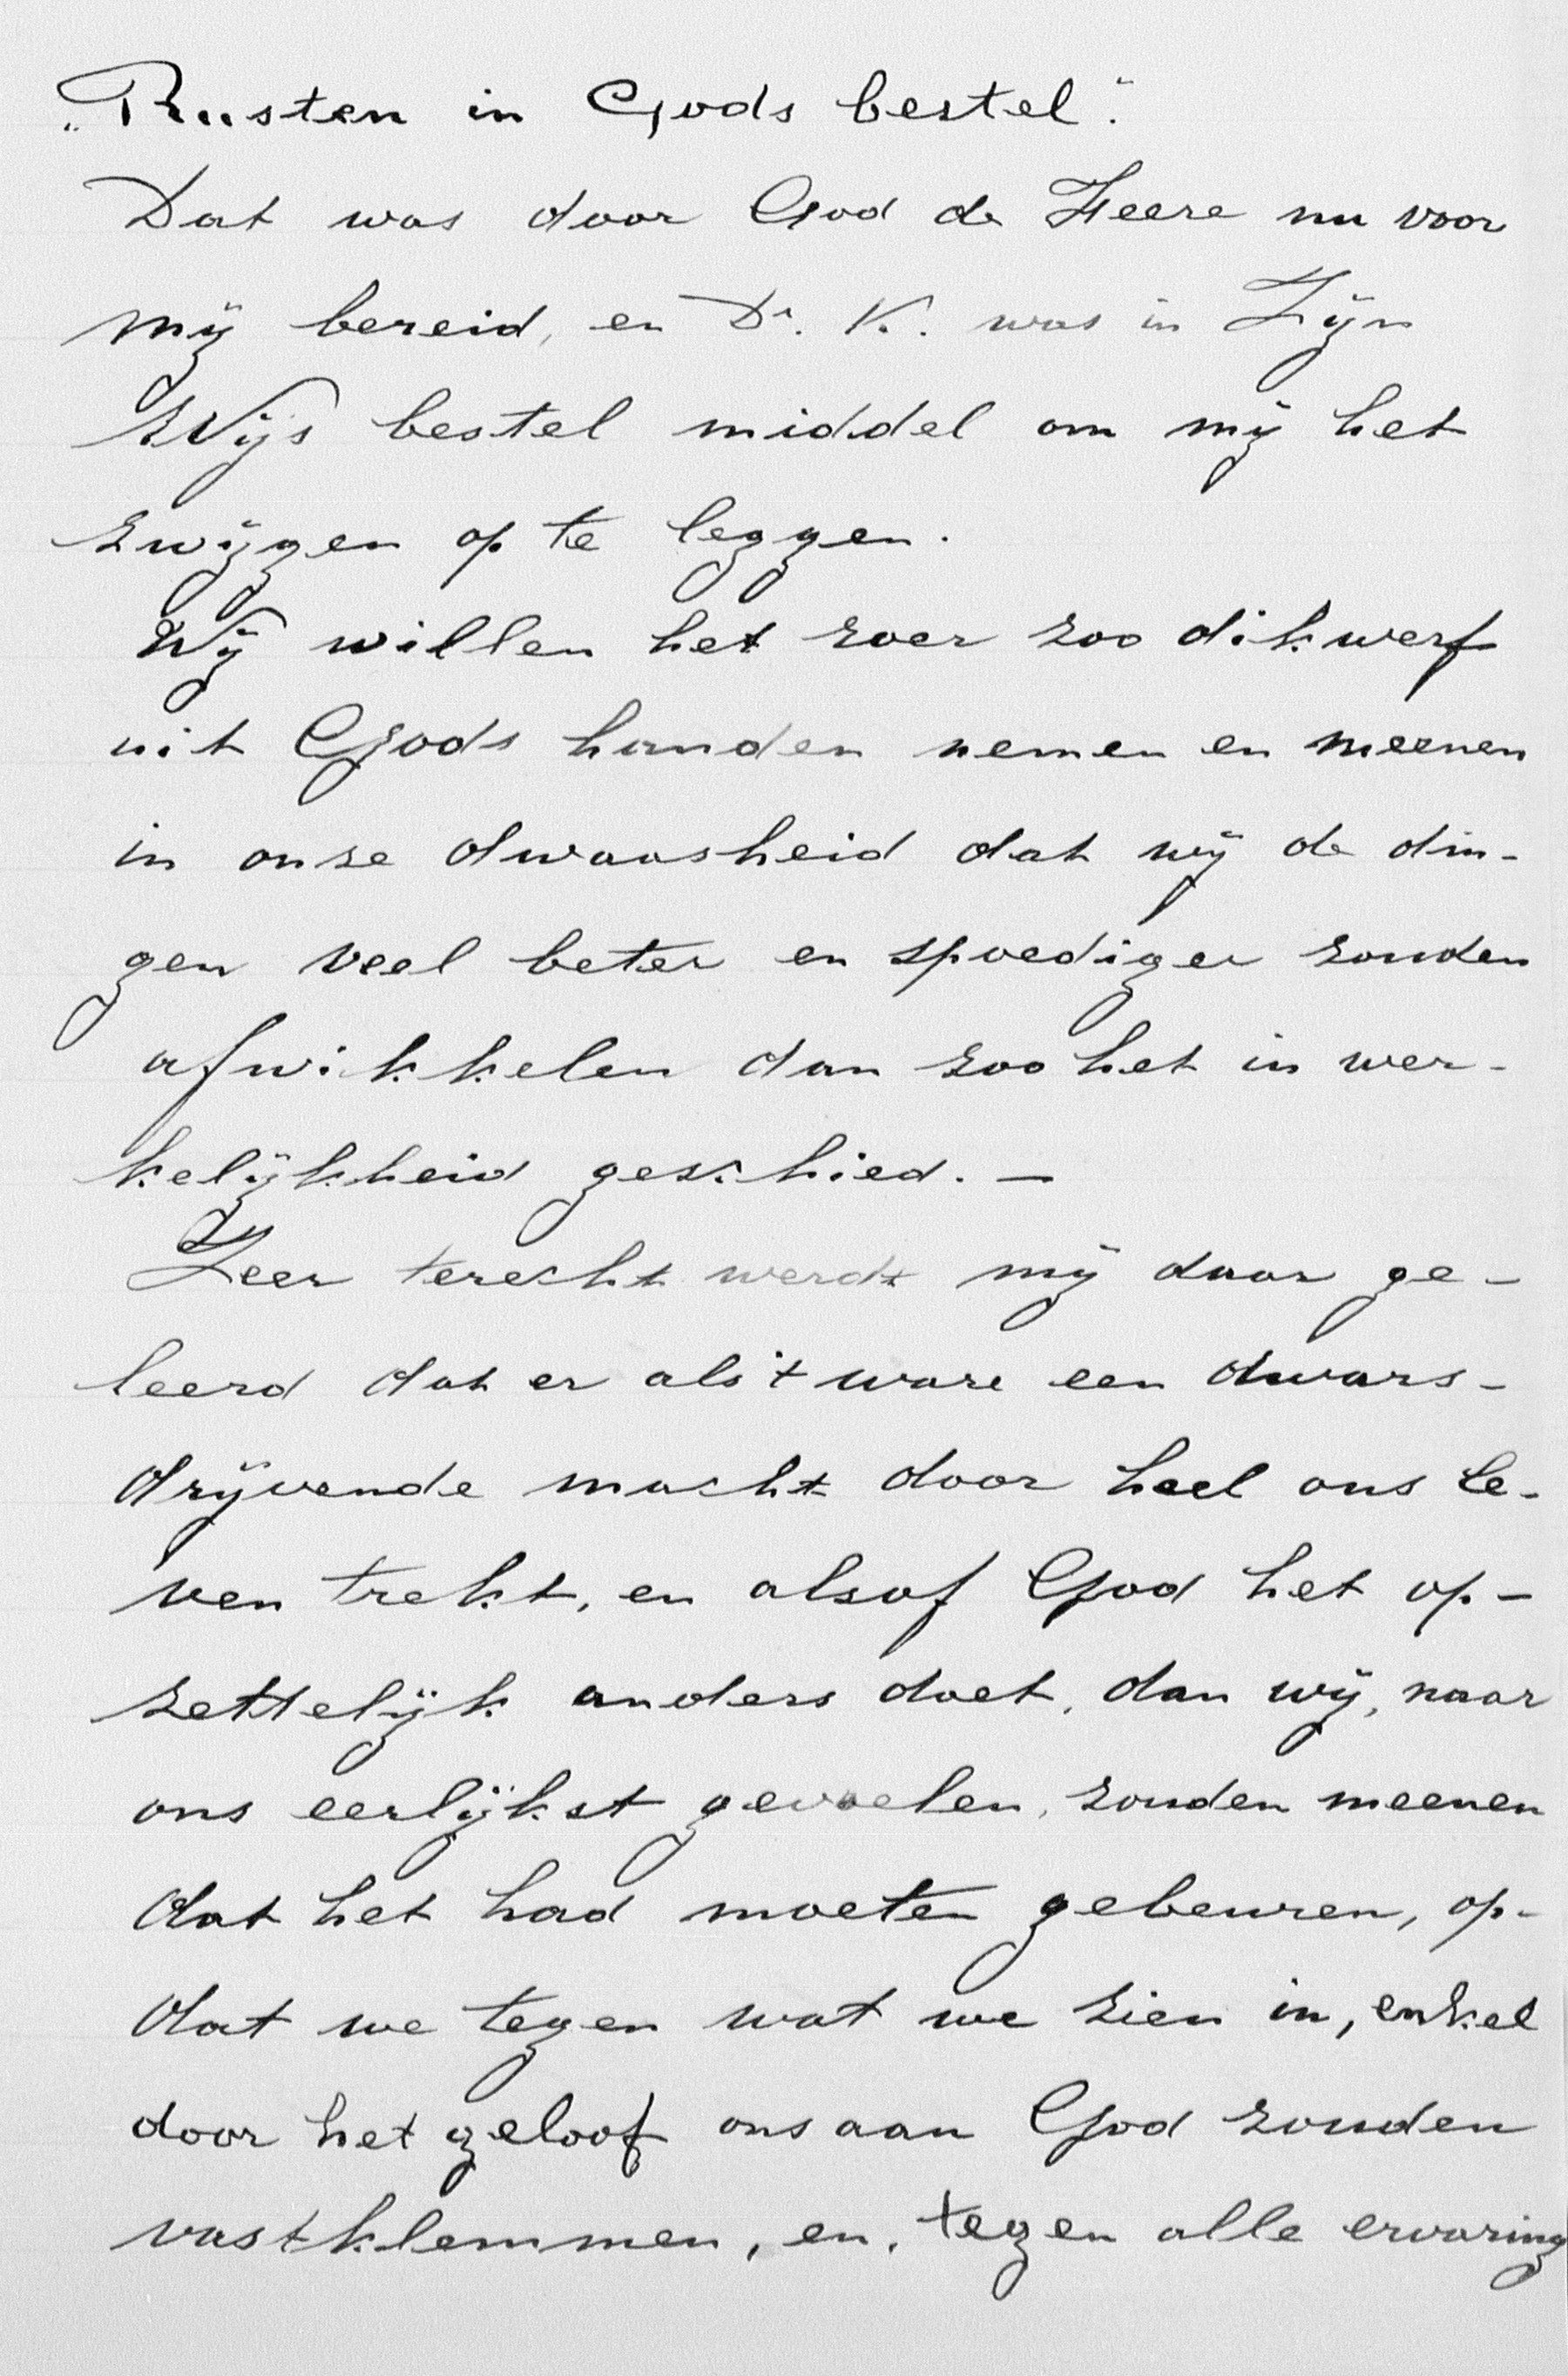 „Rusten in Gods bestel".
Dat was door God de Heere nu voor
mij bereid, en Dr. K. was in Zijn
Wijs bestel middel om mij het
zwijgen op te leggen.
Wij willen het roer zoo dikwerf
uit Gods handen nemen en meenen
in onze dwaasheid dat wij de din-
gen veel beter en spoediger zouden
afwikkelen dan zoo het in wer-
kelijkheid geschied. —
Zeer terecht werdt mij daar ge-
leerd dat er als 't ware een dwars-
drijvende macht door heel ons le-
ven trekt, en alsof God het op-
zettelijk anders doet, dan wij, naar
ons eerlijkst gevoelen, zouden meenen
dat het had moeten gebeuren, op-
dat we tegen wat we zien in, enkel
door het geloof ons aan God zouden
vastklemmen, en, tegen alle ervaring